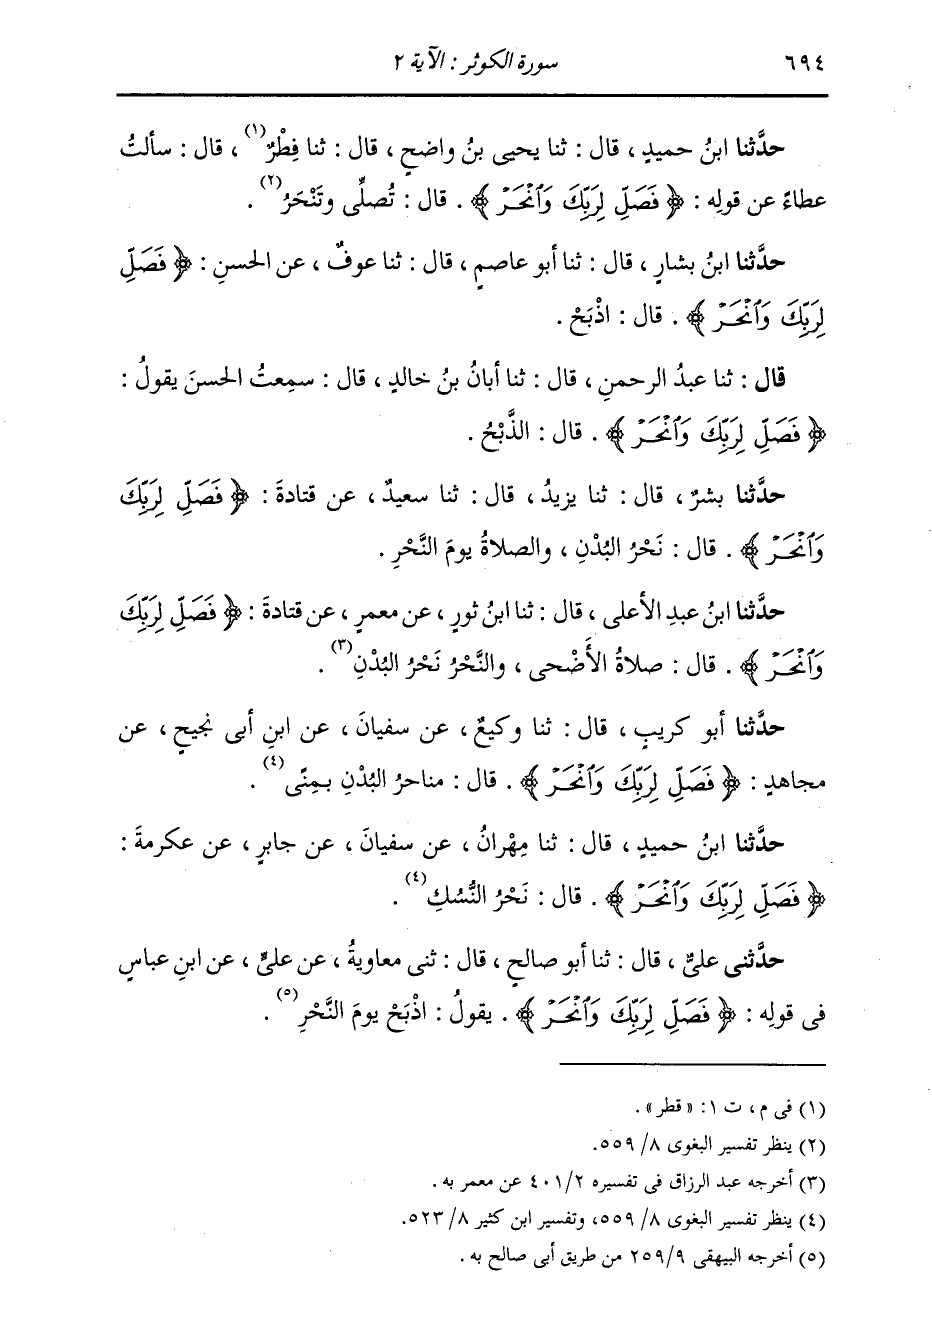 ٦٩٤ سورة الكوثر : الآية ٢
حدَّثنا ابنُ حميدٍ ، قال : ثنا يحيى بنُ واضحٍ ، قال : ثنا فِطْرٌ(١) ، قال : سألتُ
عطاءً عن قولِه : ﴿ فَصَلِّ لِرَبِّكَ وَٱنْحَرْ ﴾ . قال : تُصلِّى وتَنْحَرُ(٢) .
حدَّثنا ابنُ بشارٍ ، قال : ثنا أبو عاصمٍ ، قال : ثنا عوفٌ ، عن الحسنِ : ﴿ فَصَلِّ
لِرَبِّكَ وَٱنْحَرْ ﴾ . قال : اذْبَحْ .
قال : ثنا عبدُ الرحمنِ ، قال : ثنا أبانُ بنُ خالدٍ ، قال : سمِعتُ الحسنَ يقولُ :
﴿ فَصَلِّ لِرَبِّكَ وَٱنْحَرْ ﴾ . قال : الذَّبْحُ .
حدَّثنا بشرٌ ، قال : ثنا يزيدُ ، قال : ثنا سعيدٌ ، عن قتادةَ : ﴿ فَصَلِّ لِرَبِّكَ
وَٱنْحَرْ ﴾ . قال : نَحْرُ البُدْنِ ، والصلاةُ يومَ النَّحْرِ .
حدَّثنا ابنُ عبدِ الأعلى ، قال : ثنا ابنُ ثورٍ ، عن معمرٍ ، عن قتادةَ : ﴿ فَصَلِّ لِرَبِّكَ
وَٱنْحَرْ ﴾ . قال : صلاةُ الأَضْحى ، والنَّحْرُ نَحْرُ البُدْنِ(٣) .
حدَّثنا أبو كريبٍ ، قال : ثنا وكيعٌ ، عن سفيانَ ، عن ابنِ أبى نجيحٍ ، عن
مجاهدٍ : ﴿ فَصَلِّ لِرَبِّكَ وَٱنْحَرْ ﴾ . قال : مناحرُ البُدْنِ بمِنًى(٤) .
حدَّثنا ابنُ حميدٍ ، قال : ثنا مِهْرانُ ، عن سفيانَ ، عن جابرٍ ، عن عكرمةَ :
﴿ فَصَلِّ لِرَبِّكَ وَٱنْحَرْ ﴾ . قال : نَحْرُ النُّسُكِ(٤) .
حدَّثنى علىٌّ ، قال : ثنا أبو صالحٍ ، قال : ثنى معاويةُ ، عن علىٍّ ، عن ابنِ عباسٍ
فى قولِه : ﴿ فَصَلِّ لِرَبِّكَ وَٱنْحَرْ ﴾ . يقولُ : اذْبَحْ يومَ النَّحْرِ(٥) .
(١) فى م ، ت ١ : « قطر » .
(٢) ينظر تفسير البغوى ٨/ ٥٥٩.
(٣) أخرجه عبد الرزاق فى تفسيره ٤٠١/٢ عن معمر به .
(٤) ينظر تفسير البغوى ٨/ ٥٥٩، وتفسير ابن كثير ٨/ ٥٢٣.
(٥) أخرجه البيهقى ٢٥٩/٩ من طريق أبى صالح به .